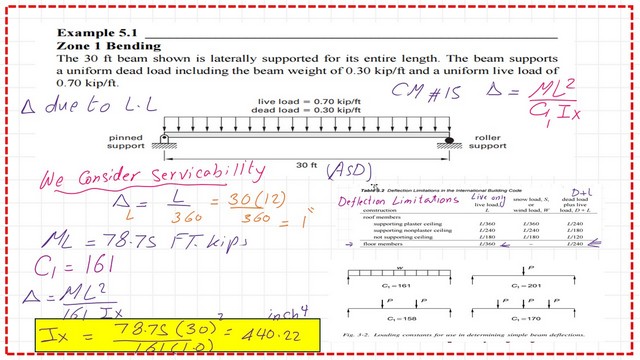 Example 5.1
Zone 1 Bending
The 30 ft beam shown is laterally supported for its entire length. The beam supports
a uniform dead load including the beam weight of 0.30 kip/ft and a uniform live load of
0.70 kip/ft.
Δ due to L.L
CM #15 Δ = ML²
C₁ Ix
live load = 0.70 kip/ft
dead load = 0.30 kip/ft
pinned
support
roller
support
30 ft
We Consider Servicability
(ASD)
Δ = L = 30(12)
L 360 360 = 1"
ML = 78.75 FT. kips
C₁ = 161
Δ = ML²
161 Ix
inch⁴
Ix = 78.75 (30)² = 440.22
161(1.0)
Deflection Limitations in the International Building Code
Deflection Limitations
Live only
D+L
construction
live load,
L
snow load, S,
or
wind load, W
dead load
plus live
load, D + L
roof members
supporting plaster ceiling L/360 L/360 L/240
supporting nonplaster ceiling L/240 L/240 L/180
not supporting ceiling L/180 L/180 L/120
floor members L/360 – L/240
w
C₁ = 161
P
C₁ = 201
P P
C₁ = 158
P P P
C₁ = 170
Fig. 3-2. Loading constants for use in determining simple beam deflections.